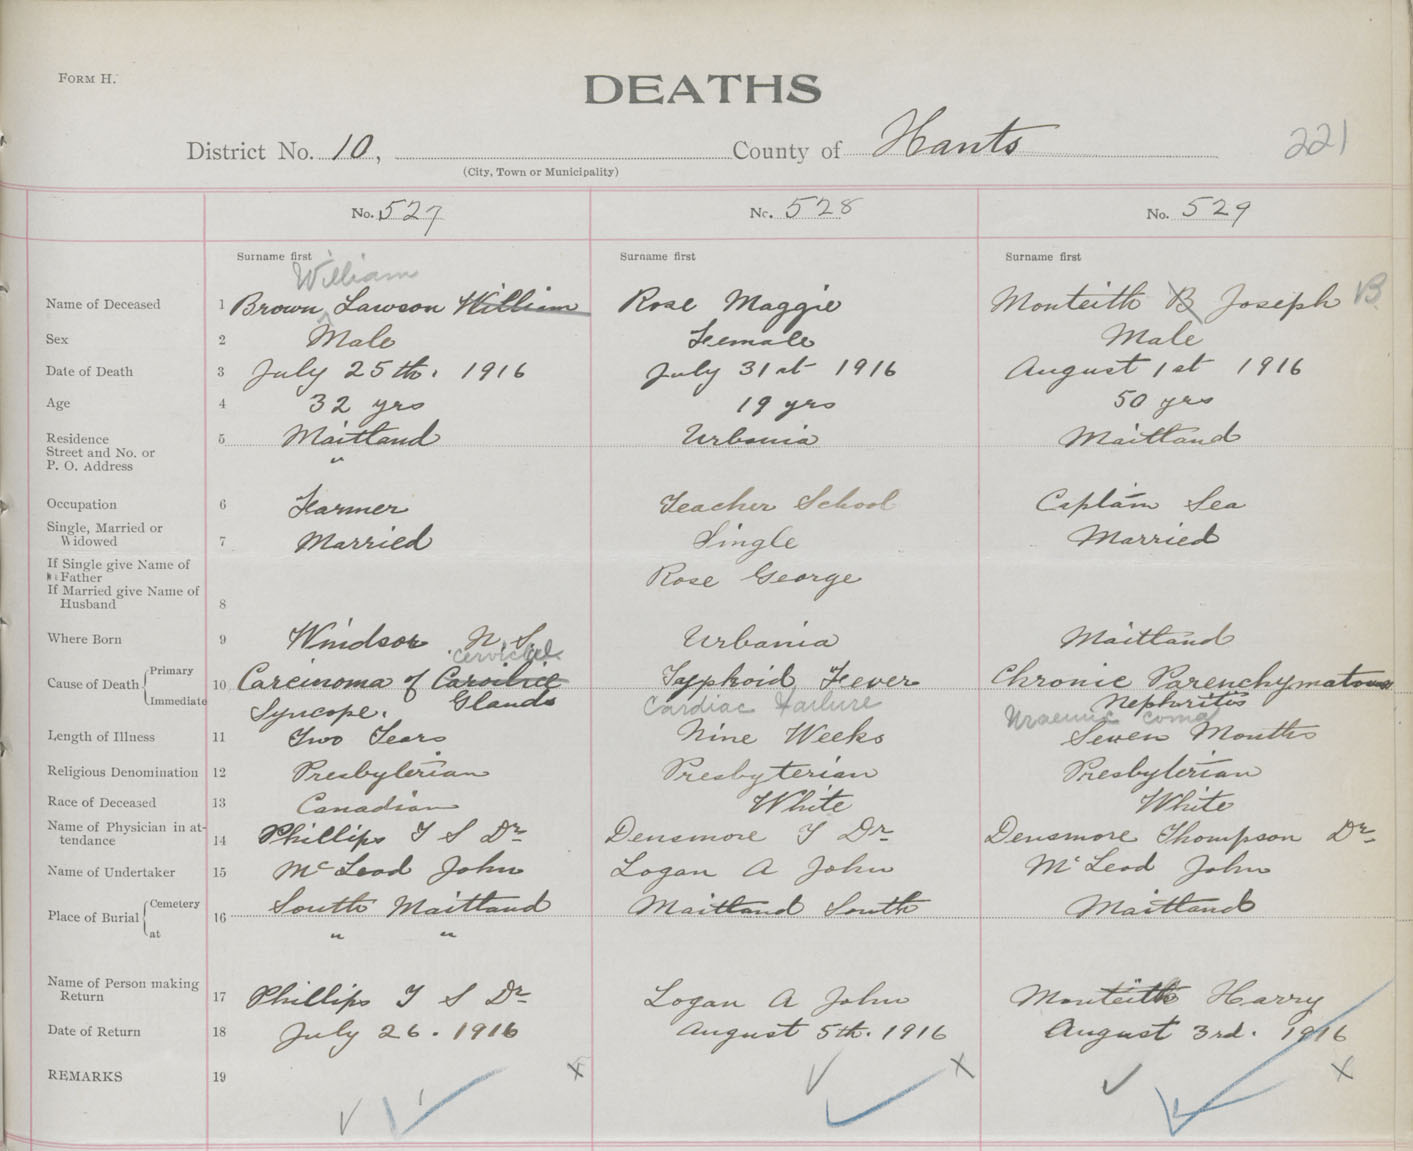 FORM H.
DEATHS
District No. 10, County of Hants 221
(City, Town or Municipality)
No. 527 No. 528 No. 529
Surname first Surname first Surname first
William
Name of Deceased 1 Brown, Lawson William Rose Maggie Monteith B Joseph B
Sex 2 Male Female Male
Date of Death 3 July 25th. 1916 July 31st 1916 August 1st 1916
Age 4 32 yrs 19 yrs 50 yrs
Residence 5 Maitland Urbania Maitland
Street and No. or "
P. O. Address
Occupation 6 Farmer Teacher School Captain Sea
Single, Married or
Widowed 7 Married Single Married
If Single give Name of
Father Rose George
If Married give Name of
Husband 8
Where Born 9 Windsor N. S. Urbania Maitland
cervical
Primary
Cause of Death 10 Carcinoma of Typhoid Fever Chronic Parenchymatous
Immediate Glands Nephritis
Syncope. Cardiac Failure Uraemic coma
Length of Illness 11 Two Years Nine Weeks Seven Months
Religious Denomination 12 Presbyterian Presbyterian Presbyterian
Race of Deceased 13 Canadian White White
Name of Physician in at-
tendance 14 Phillips T S Dr Densmore T Dr Densmore Thompson Dr
Name of Undertaker 15 McLeod John Logan A John McLeod John
Cemetery
Place of Burial 16 South Maitland Maitland South Maitland
at " "
Name of Person making
Return 17 Phillips T S Dr Logan A John Monteith Harry
Date of Return 18 July 26. 1916 August 5th. 1916 August 3rd. 1916
REMARKS 19 x x x